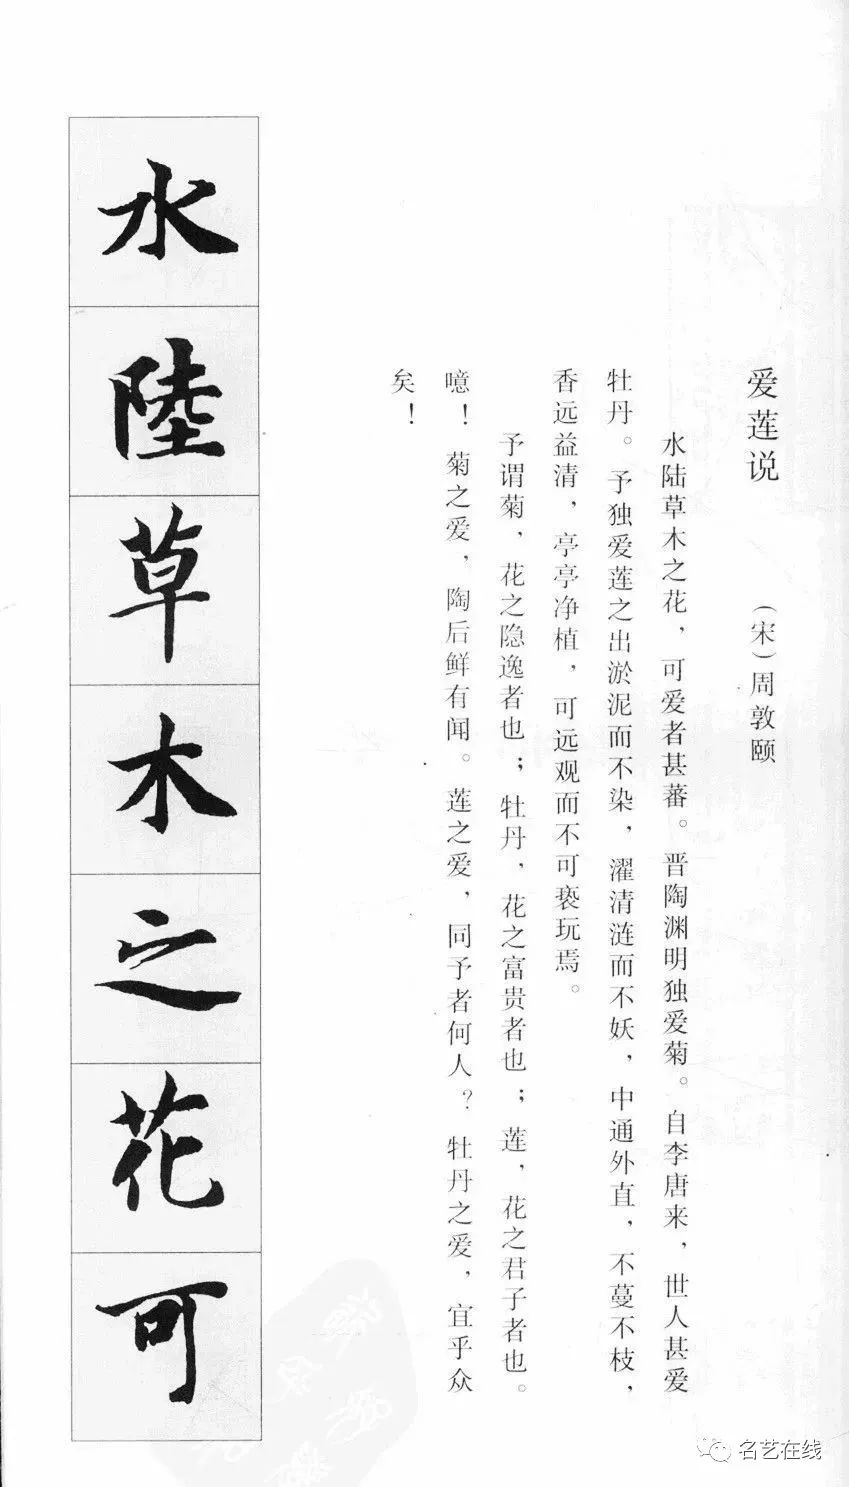 爱莲说
（宋）周敦颐
水陆草木之花，可爱者甚蕃。晋陶渊明独爱菊。自李唐来，世人甚爱
牡丹。予独爱莲之出淤泥而不染，濯清涟而不妖，中通外直，不蔓不枝，
香远益清，亭亭净植，可远观而不可亵玩焉。
予谓菊，花之隐逸者也；牡丹，花之富贵者也；莲，花之君子者也。
噫！菊之爱，陶后鲜有闻。莲之爱，同予者何人？牡丹之爱，宜乎众
矣！
水陸草木之花可
名艺在线